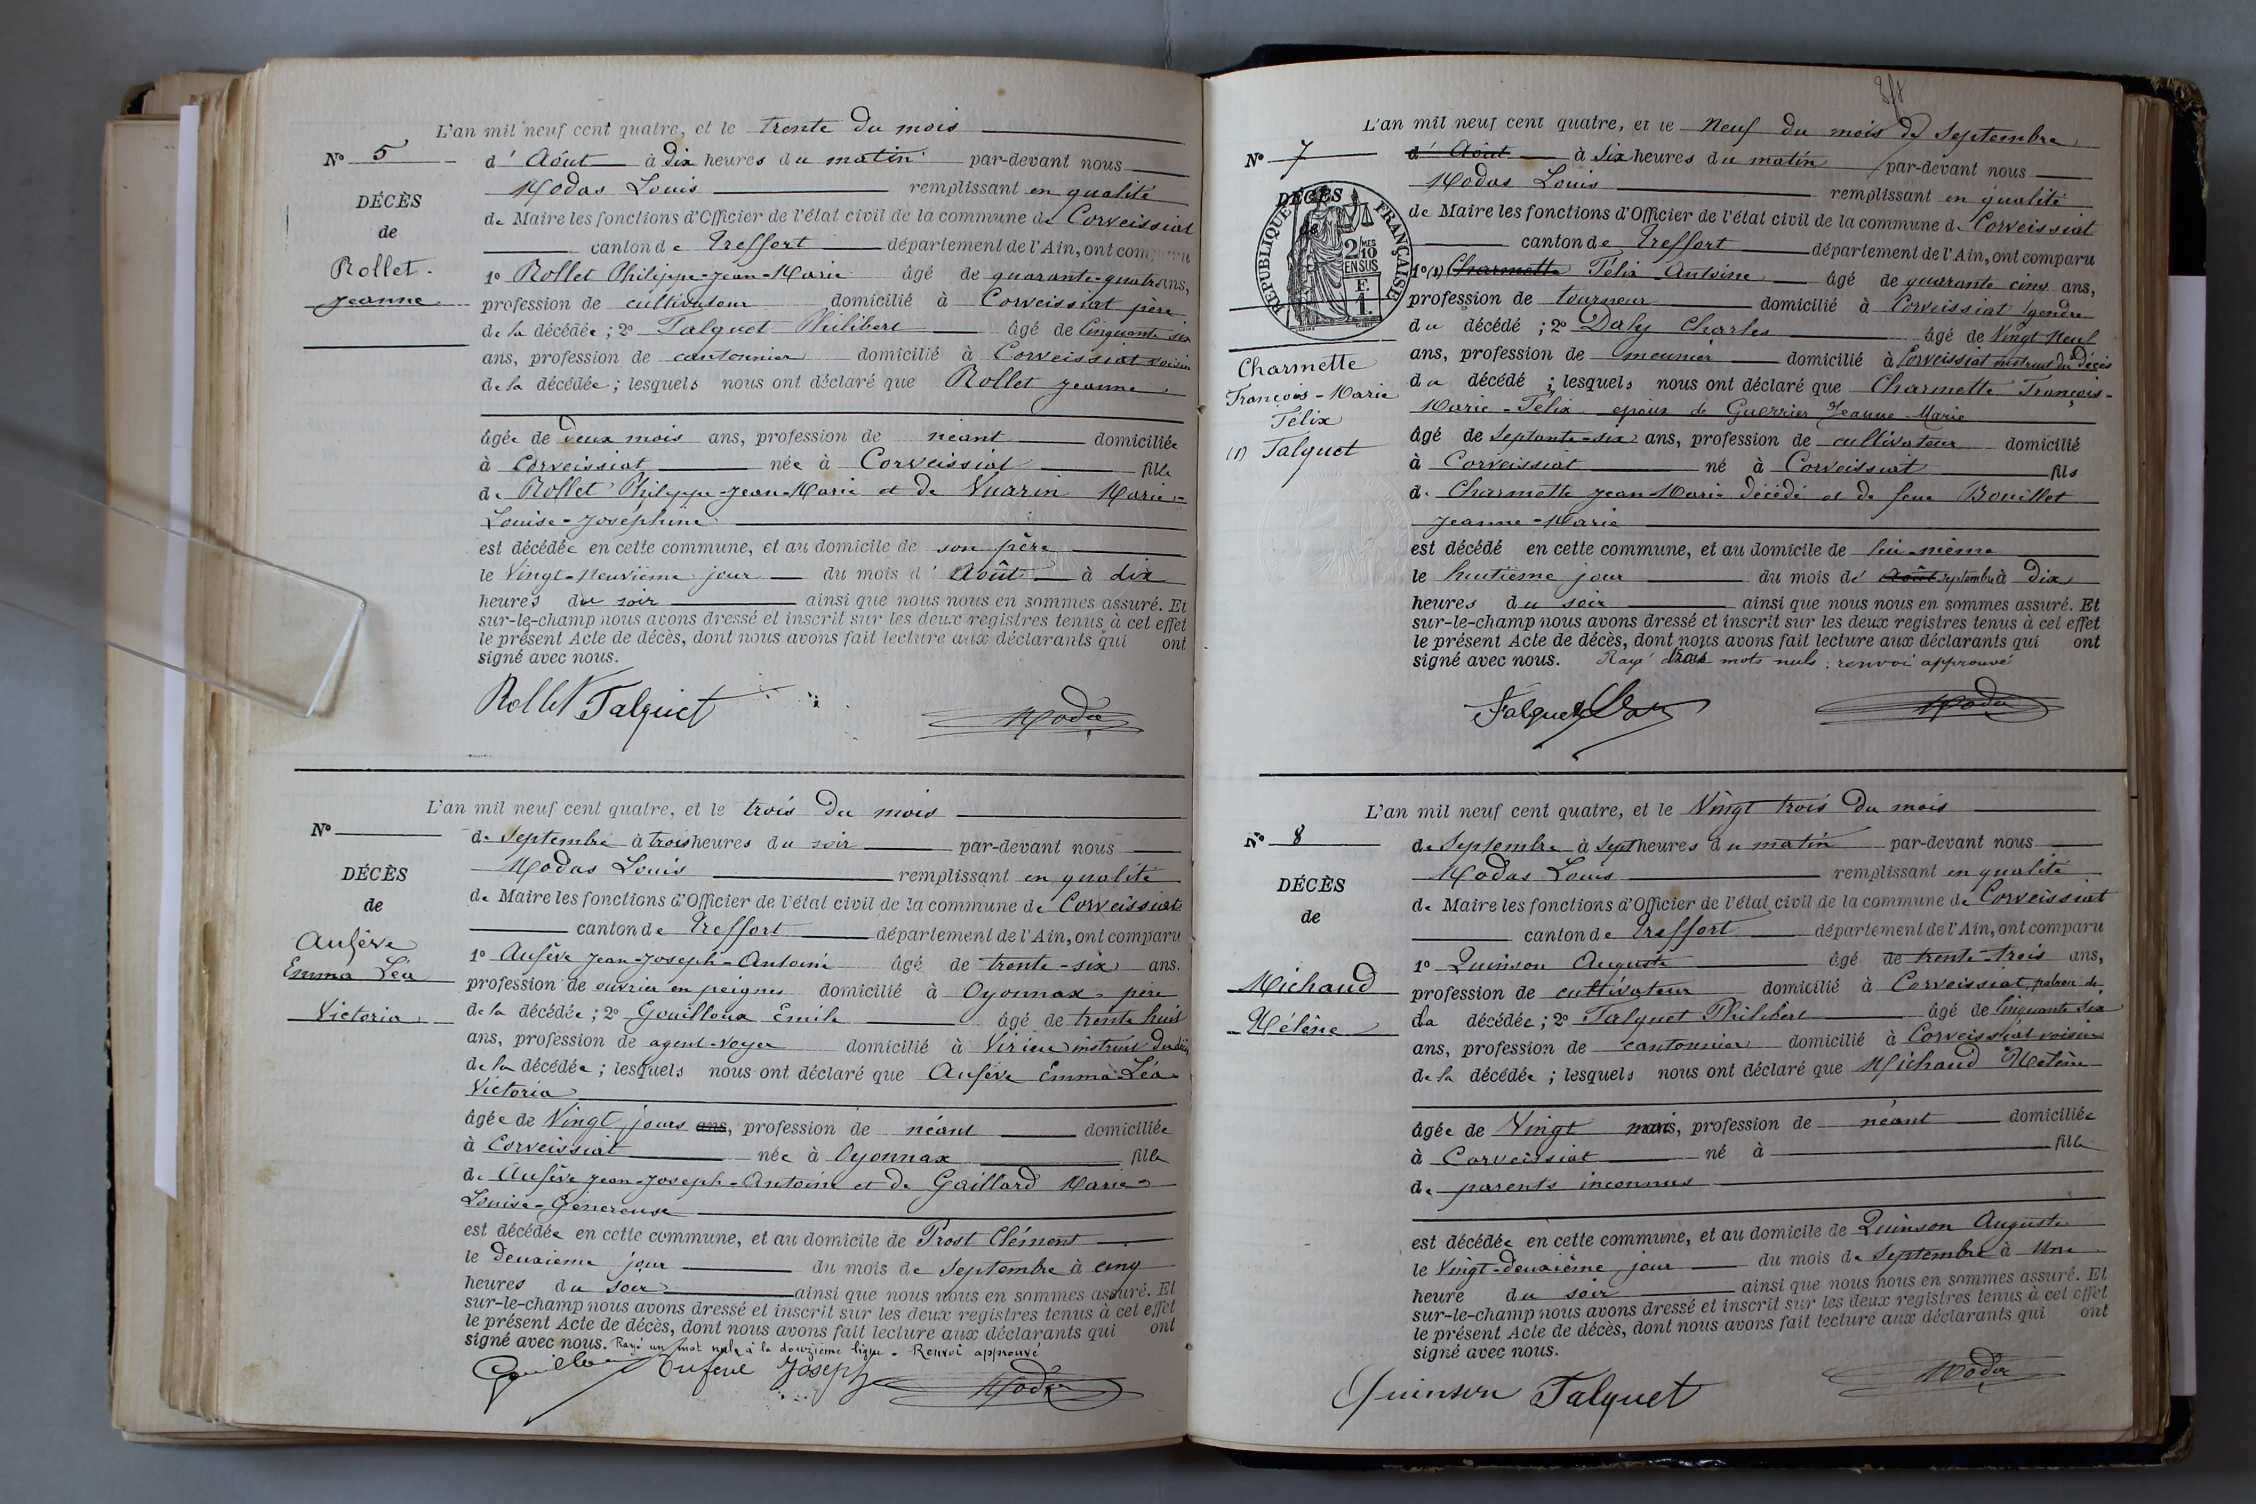 L'an mil neuf cent quatre, et le trente du mois
N° 5
d'Août à dix heures du matin par-devant nous
Modas Louis remplissant en qualité
DÉCÈS
de Maire les fonctions d'Officier de l'état civil de la commune de Corveissiat
de
canton de Treffort département de l'Ain, ont comparu
Rollet
Jeanne
1° Rollet Philippe-Jean-Marie âgé de quarante-quatre ans,
profession de cultivateur domicilié à Corveissiat père
de la décédée ; 2° Falquet Philibert âgé de Cinquante six
ans, profession de cantonnier domicilié à Corveissiat voisin
de la décédée ; lesquels nous ont déclaré que Rollet Jeanne
âgée de deux mois ans, profession de néant domiciliée
à Corveissiat née à Corveissiat fille
de Rollet Philippe-Jean-Marie et de Vuarin Marie-
Louise-Joséphine
est décédée en cette commune, et au domicile de son père
le Vingt-neuvième jour du mois d'Août à dix
heures du soir ainsi que nous nous en sommes assuré. Et
sur-le-champ nous avons dressé et inscrit sur les deux registres tenus à cet effet
le présent Acte de décès, dont nous avons fait lecture aux déclarants qui ont
signé avec nous.
Rollet Falquet Modas
L'an mil neuf cent quatre, et le trois du mois
N°
de Septembre à trois heures du soir par-devant nous
Modas Louis remplissant en qualité
DÉCÈS
de Maire les fonctions d'Officier de l'état civil de la commune de Corveissiat
de
canton de Treffort département de l'Ain, ont comparu
Aufève
Emma Léa
Victoria
1° Aufève Jean-Joseph-Antoine âgé de trente-six ans.
profession de ouvrier en peignes domicilié à Oyonnax père
de la décédée ; 2° Gouilloux Emile âgé de trente huit
ans, profession de agent-voyer domicilié à Virieu instruit du décès
de la décédée ; lesquels nous ont déclaré que Aufève Emma-Léa-
Victoria
âgée de Vingt jours ans, profession de néant domiciliée
à Corveissiat née à Oyonnax fille
de Aufève Jean-Joseph-Antoine et de Gaillard Marie-
Louise-Génereuse
est décédée en cette commune, et au domicile de Prost Clément
le deuxième jour du mois de Septembre à cinq
heures du soir ainsi que nous nous en sommes assuré. Et
sur-le-champ nous avons dressé et inscrit sur les deux registres tenus à cet effet
le présent Acte de décès, dont nous avons fait lecture aux déclarants qui ont
signé avec nous. Rayé un mot nul à la douzième ligne. Renvoi approuvé
Gouilloux Aufève Joseph Modas
L'an mil neuf cent quatre, et le Neuf du mois de Septembre
N° 7
d'Août à Six heures du matin par-devant nous
Modas Louis remplissant en qualité
DÉCÈS
de
RÉPUBLIQUE FRANÇAISE
2/10 MES
EN SUS
F.
1.
de Maire les fonctions d'Officier de l'état civil de la commune de Corveissiat
canton de Treffort département de l'Ain, ont comparu
1° (1) Charmette Félix Antoine âgé de quarante cinq ans,
profession de tourneur domicilié à Corveissiat gendre
du décédé ; 2° Daly Charles âgé de Vingt Neuf
ans, profession de meunier domicilié à Corveissiat instruit du décès
Charmette
François-Marie
Félix
(1) Falquet
du décédé ; lesquels nous ont déclaré que Charmette François-
Marie-Félix époux de Guerrier Jeanne Marie
âgé de Septante-six ans, profession de cultivateur domicilié
à Corveissiat né à Corveissiat fils
de Charmette Jean-Marie décédé et de feue Bouillet
Jeanne-Marie
est décédé en cette commune, et au domicile de lui-même
le huitième jour du mois de Août septembre à Dix
heures du soir ainsi que nous nous en sommes assuré. Et
sur-le-champ nous avons dressé et inscrit sur les deux registres tenus à cet effet
le présent Acte de décès, dont nous avons fait lecture aux déclarants qui ont
signé avec nous. Rayé trois mots nuls ; renvoi approuvé
Falquet Modas
L'an mil neuf cent quatre, et le Vingt trois du mois
N° 8
de Septembre à Sept heures du matin par-devant nous
Modas Louis remplissant en qualité
DÉCÈS
de Maire les fonctions d'Officier de l'état civil de la commune de Corveissiat
de
canton de Treffort département de l'Ain, ont comparu
Michaud
Hélène
1° Quinson Auguste âgé de trente-trois ans,
profession de cultivateur domicilié à Corveissiat, patron de
la décédée ; 2° Falquet Philibert âgé de Cinquante Six
ans, profession de cantonnier domicilié à Corveissiat voisin
de la décédée ; lesquels nous ont déclaré que Michaud Hélène
âgée de Vingt mois, profession de néant domiciliée
à Corveissiat né à fille
de parents inconnus
est décédée en cette commune, et au domicile de Quinson Auguste
le Vingt-deuxième jour du mois de Septembre à Une
heure du soir ainsi que nous nous en sommes assuré. Et
sur-le-champ nous avons dressé et inscrit sur les deux registres tenus à cet effet
le présent Acte de décès, dont nous avons fait lecture aux déclarants qui ont
signé avec nous.
Quinson Falquet Modas